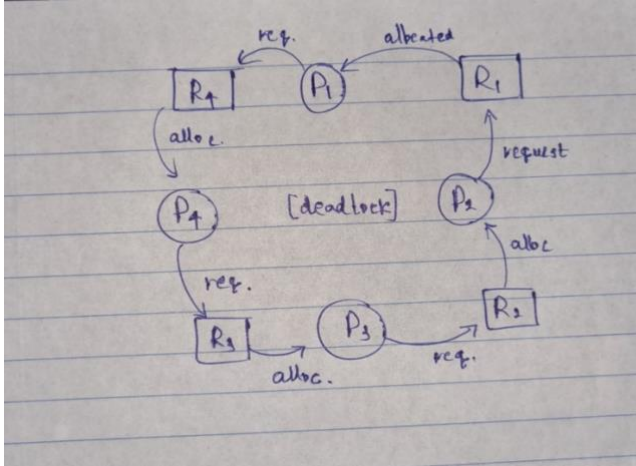 req. allocated
R4 P1 R1
alloc. request
P4 [deadlock] P2
alloc
req. R2
R3 P3
alloc. req.